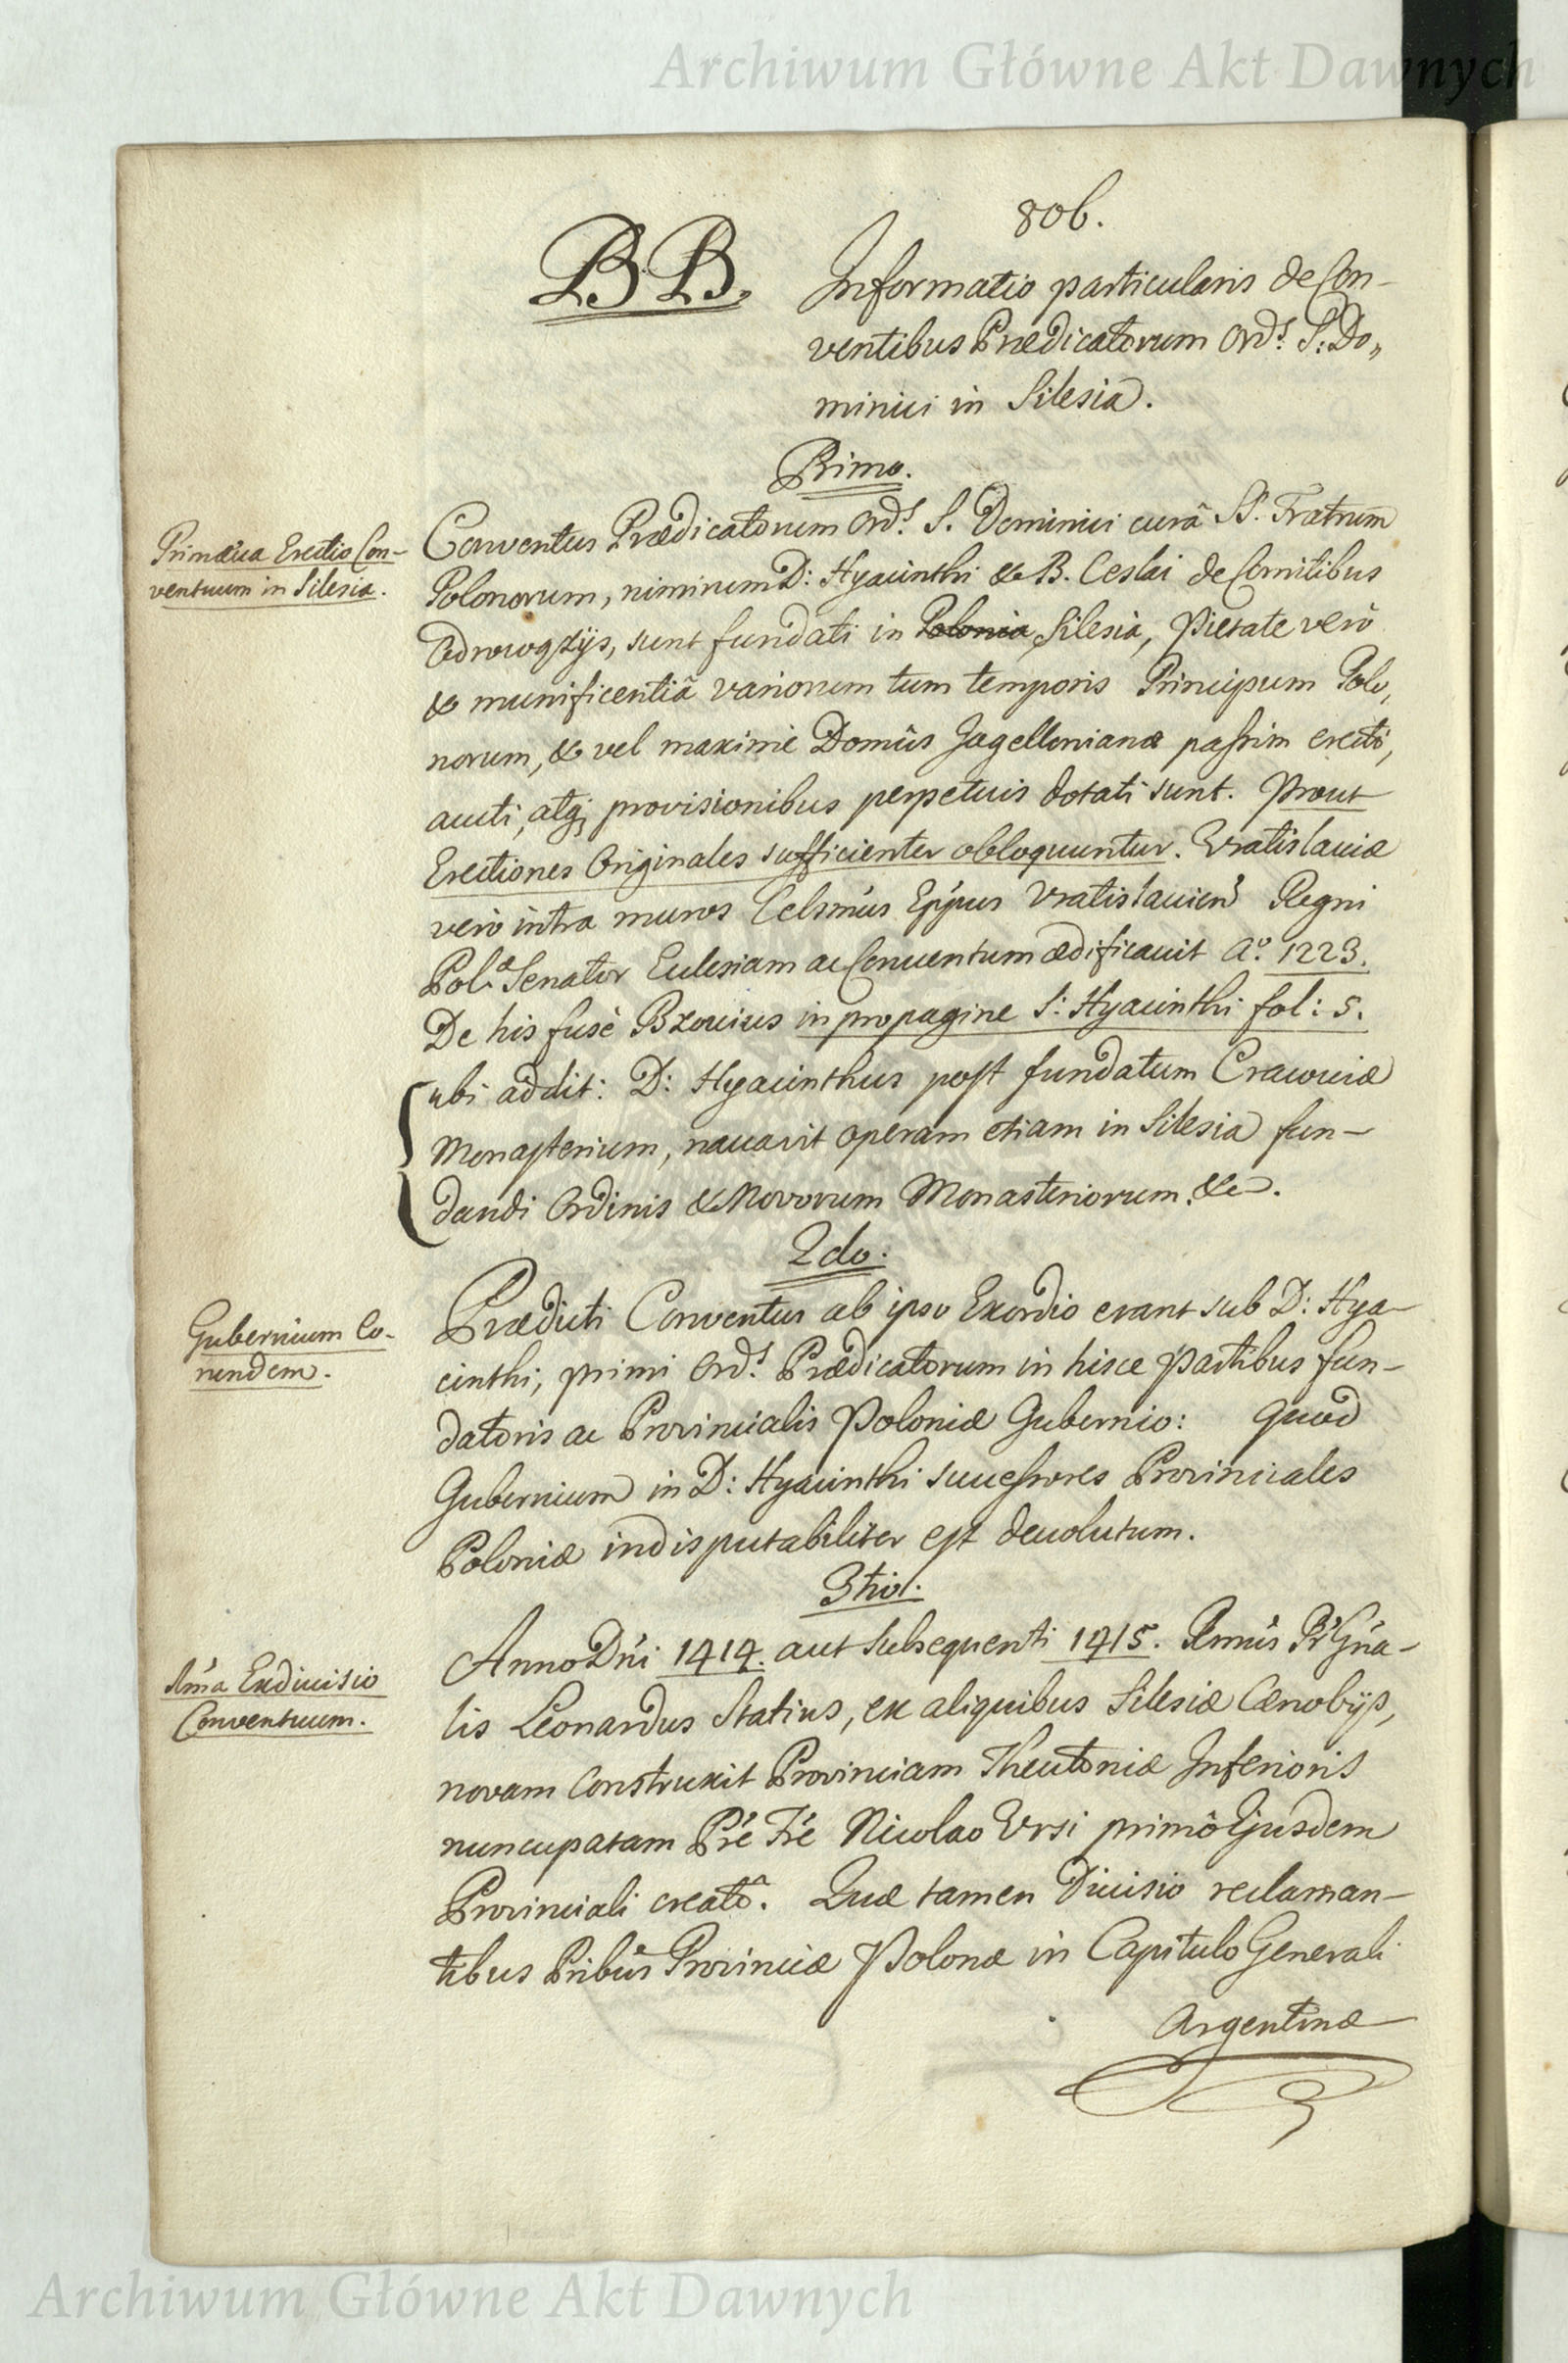 Archiwum Główne Akt Dawnych
806.
BB. Informatio particularis de Con-
ventibus Prædicatorum Ord.s S: Do„
minici in Silesia.
Primo.
Primæua Erectio Con-
ventuum in Silesia.
Conventus Prædicatorum Ord.s S. Dominici curâ SS. Fratrum
Polonorum, nimirum D: Hyacinthi & B. Ceslai de Comitibus
Odrowążÿs, sunt fundati in Polonia Silesia, Pietate verò
& munificentiâ variorum tum temporis Principum Polo,
norum, & vel maximè Domûs Jagellonianæ passim erecti,
aucti, atq; provisionibus perpetuis dotati sunt. Prout
Erectiones Originales sufficienter obloquuntur. Vratislauiæ
verò intra muros Celsmús Epṕus Vratislauień Regni
Pol.æ Senator Ecclesiam ac Conuentum ædificauit Aº. 1223.
De his fusè Bzouius in propagine S: Hyacinthi fol: 5.
ubi addit: D: Hyacinthus post fundatum Cracouiæ
Monasterium, nauavit operam etiam in Silesia fun-
dandi Ordinis & Novorum Monasteriorum. &c.
2do.
Gubernium Eo-
rundem.
Prædicti Conventus ab ipso Exordio erant sub D: Hya-
cinthi, primi Ord.s Prædicatorum in hisce Partibus fun-
datoris ac Provincialis Poloniæ Gubernio: Quod
Gubernium in D: Hyacinthi successores Provinciales
Poloniæ indisputabiliter est deuolutum.
3tio.
Ima Exdiuisio
Conventuum.
Anno Dńi 1414. aut Subsequenti 1415. Rmús Pr Gńa-
lis Leonardus Statius, ex aliquibus Silesiæ Cænobÿs,
novam construxit Provinciam Theutoniæ Inferioris
nuncupatam Pŕe Fŕe Nicolao Vrsi primô Ejusdem
Provinciali creatô. Quæ tamen Diuisio reclaman-
tibus Pribús Provinciæ Polonæ in Capitulo Generali
Argentinæ
Archiwum Główne Akt Dawnych